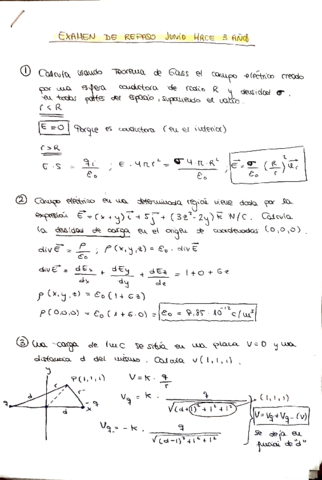 EXAMEN DE REPASO JUNIO HACE 3 AÑOS
① Calcula usando Teorema de Gauss el campo eléctrico creado
por una esfera conductora de radio R y densidad σ.
en todas partes del espacio, suponiendo el vacío.
r < R
E = 0 Porque es conductora (en el interior)
r > R
E · S = qi/ε₀ ; E · 4πr² = σ 4·π·R²/ε₀ , E⃗ = σ/ε₀ (R/r)² u⃗r
② Campo eléctrico en una determinada región viene dada por la
expresión E⃗ = (x + y) i⃗ + 5 j⃗ + (3z² - 2y) k⃗ N/C. Calcula
la densidad de carga en el origen de coordenadas (0,0,0).
div E⃗ = ρ/ε₀ ; ρ(x,y,z) = ε₀ · div E⃗
div E⃗ = dEx/dx + dEy/dy + dEz/dz = 1 + 0 + 6z
ρ(x,y,z) = ε₀ (1 + 6z)
ρ(0,0,0) = ε₀ (1 + 6·0) = ε₀ = 8,85 · 10⁻¹² C/m³
③ Una carga de 1 mC se sitúa en un plano V = 0 y una
distancia d del mismo. Calcula V(1,1,1).
y
P(1,1,1)
r
r'
d
d
-q
q
x
V = k · q/r
Vq = k · q/√((d+1)² + 1² + 1²)
(1,1,1)
V = Vq + Vq-(V)
se deja en
función de "d"
Vq- = -k · q/√((d-1)² + 1² + 1²)